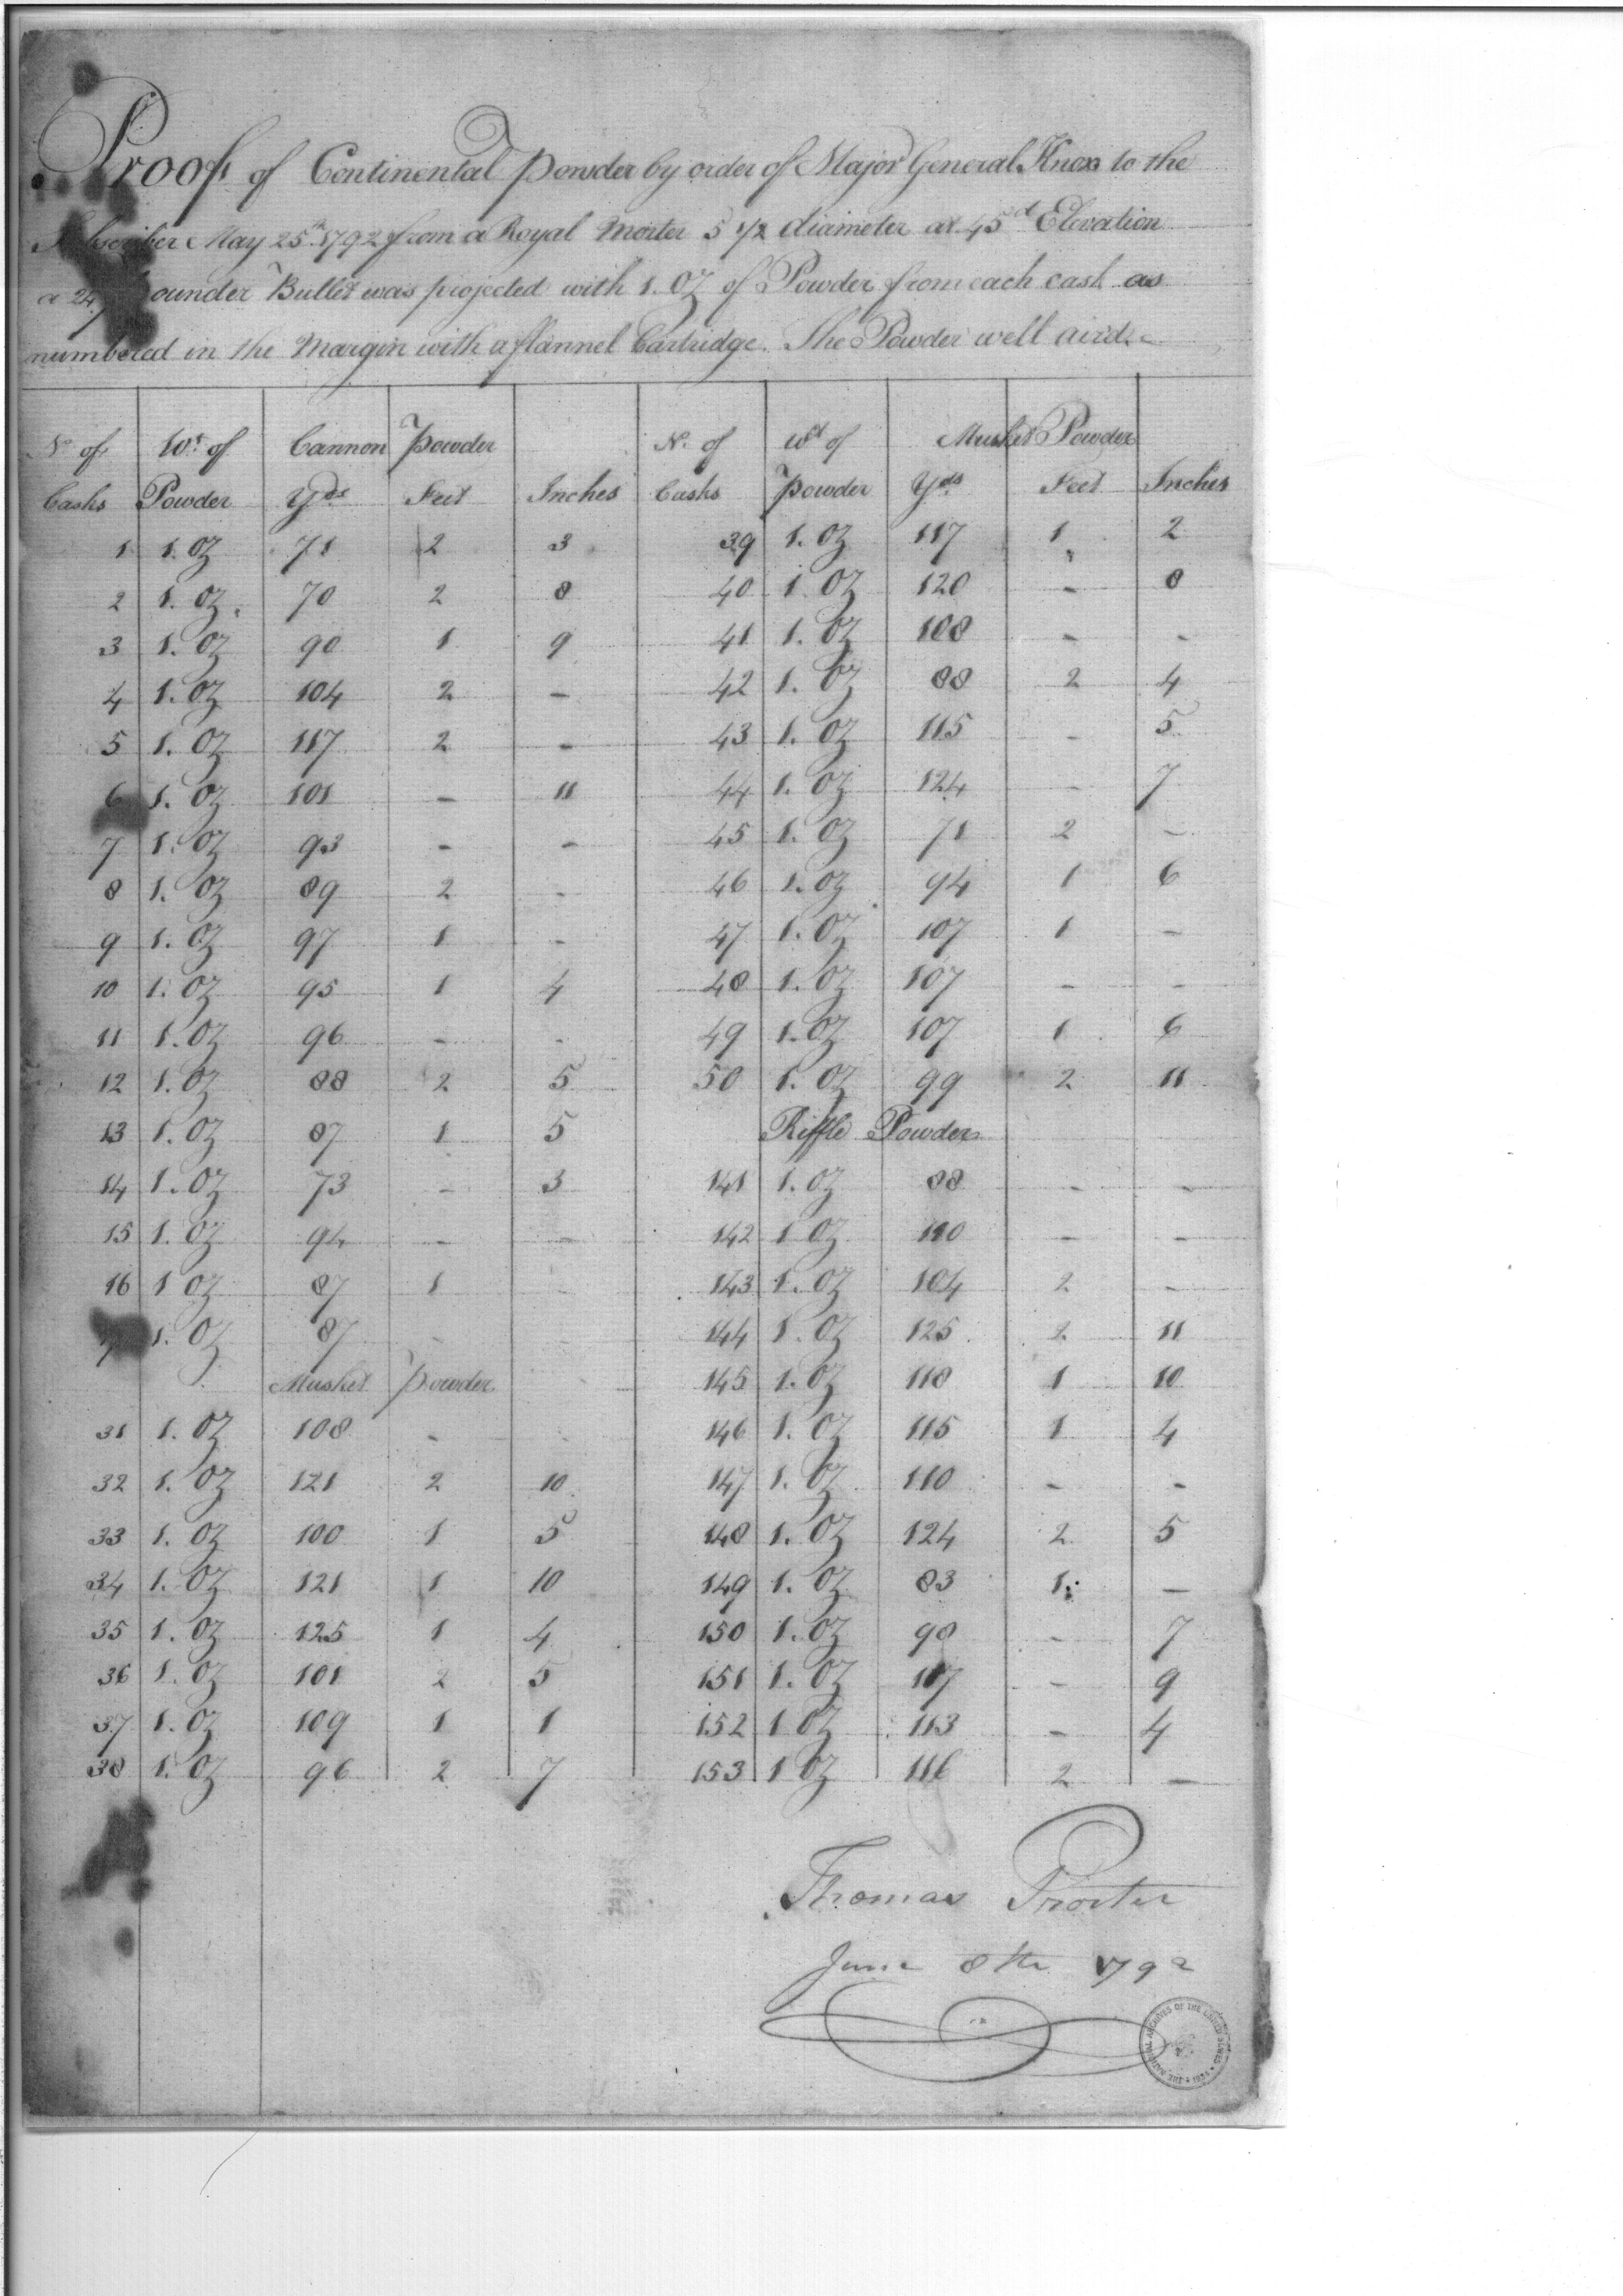 Proofs of Continental Powder by order of Major General Knox to the
Subscriber May 25th 1792 from a Royal Morter 5 1/2 diameter at 45d Elevation
a 24 pounder Bullet was projected with 1. OZ of Powder from each cask as
numbered in the Margin with a flannel Cartridge. The Powder well air'd.
No of Wt of Cannon Powder No. of Wd of Musket Powder
Casks Powder Yds Feet Inches Casks Powder Yds Feet Inches
1 1. OZ 71 2 3 39 1. OZ 117 1 2
2 1. OZ 70 2 8 40 1. OZ 120 - 8
3 1. OZ 90 1 9 41 1. OZ 108 - -
4 1. OZ 104 2 - 42 1. OZ 88 2 4
5 1. OZ 117 2 - 43 1. OZ 115 - 5
6 1. OZ 101 - 11 44 1. OZ 124 - 7
7 1. OZ 93 - - 45 1. OZ 71 2 -
8 1. OZ 89 2 - 46 1. OZ 94 1 6
9 1. OZ 97 1 - 47 1. OZ 107 1 -
10 1. OZ 95 1 4 48 1. OZ 107 - -
11 1. OZ 96 - - 49 1. OZ 107 1 6
12 1. OZ 88 2 5 50 1. OZ 99 2 11
13 1. OZ 87 1 5 Riffle Powder
14 1. OZ 73 - 3 141 1. OZ 88 - -
15 1. OZ 94 - - 142 1 OZ 110 - -
16 1 OZ 87 1 - 143 1. OZ 104 2 -
17 1. OZ 87 - - 144 1. OZ 125 2 11
Musket Powder 145 1. OZ 118 1 10
31 1. OZ 108 - - 146 1. OZ 115 1 4
32 1. OZ 121 2 10 147 1. OZ 110 - -
33 1. OZ 100 1 5 148 1. OZ 124 2 5
34 1. OZ 121 1 10 149 1. OZ 83 1 -
35 1. OZ 125 1 4 150 1. OZ 98 - 7
36 1. OZ 101 2 5 151 1. OZ 117 - 9
37 1. OZ 109 1 1 152 1 OZ 113 - 4
38 1. OZ 96 2 7 153 1 OZ 116 2 -
Thomas Procter
June 8th 1792
THE NATIONAL ARCHIVES OF THE UNITED STATES